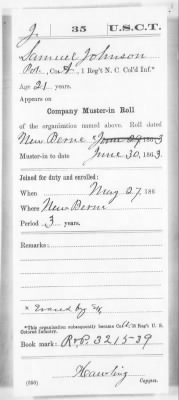 J. | 35 | U.S.C.T.
Samuel Johnson
Pvt., Co. A, 1 Reg't N. C. Col'd Inf.*
Age 21 years.
Appears on
Company Muster-in Roll
of the organization named above. Roll dated
New Berne June 29, 1863
Muster-in to date June 30, 1863.
Joined for duty and enrolled:
When May 27, 186
Where New Berne
Period 3 years.
Remarks:
* Erased by
*This organization subsequently became Co. 35 Reg't U. S.
Colored Infantry.
Book mark: R&P. 321539
Hawling
(350) Copyist.